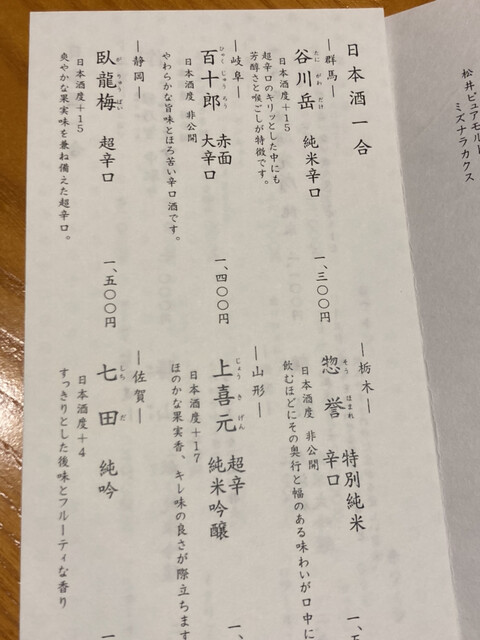 松井ピュアモルト
ミズナラカクス
日本酒一合
―群馬―
谷川岳 純米辛口
たに がわ だけ
日本酒度+15
超辛口のキリッとした中にも
芳醇さと喉ごしが特徴です。
一、三〇〇円
―岐阜―
百十郎 赤面
大辛口
ひゃく じゅう ろう
日本酒度 非公開
やわらかな旨味とほろ苦い辛口酒です。
一、四〇〇円
―静岡―
臥龍梅 超辛口
が りゅう ばい
日本酒度+15
爽やかな果実味を兼ね備えた超辛口。
一、五〇〇円
―栃木―
惣誉 特別純米
辛口
そう ほまれ
日本酒度 非公開
飲むほどにその奥行と幅のある味わいが口中に
―山形―
上喜元 超辛
純米吟醸
じょう き げん
日本酒度+17
ほのかな果実香、キレ味の良さが際立ちます
一、
―佐賀―
七田 純吟
しち だ
日本酒度+4
すっきりとした後味とフルーティな香り
一